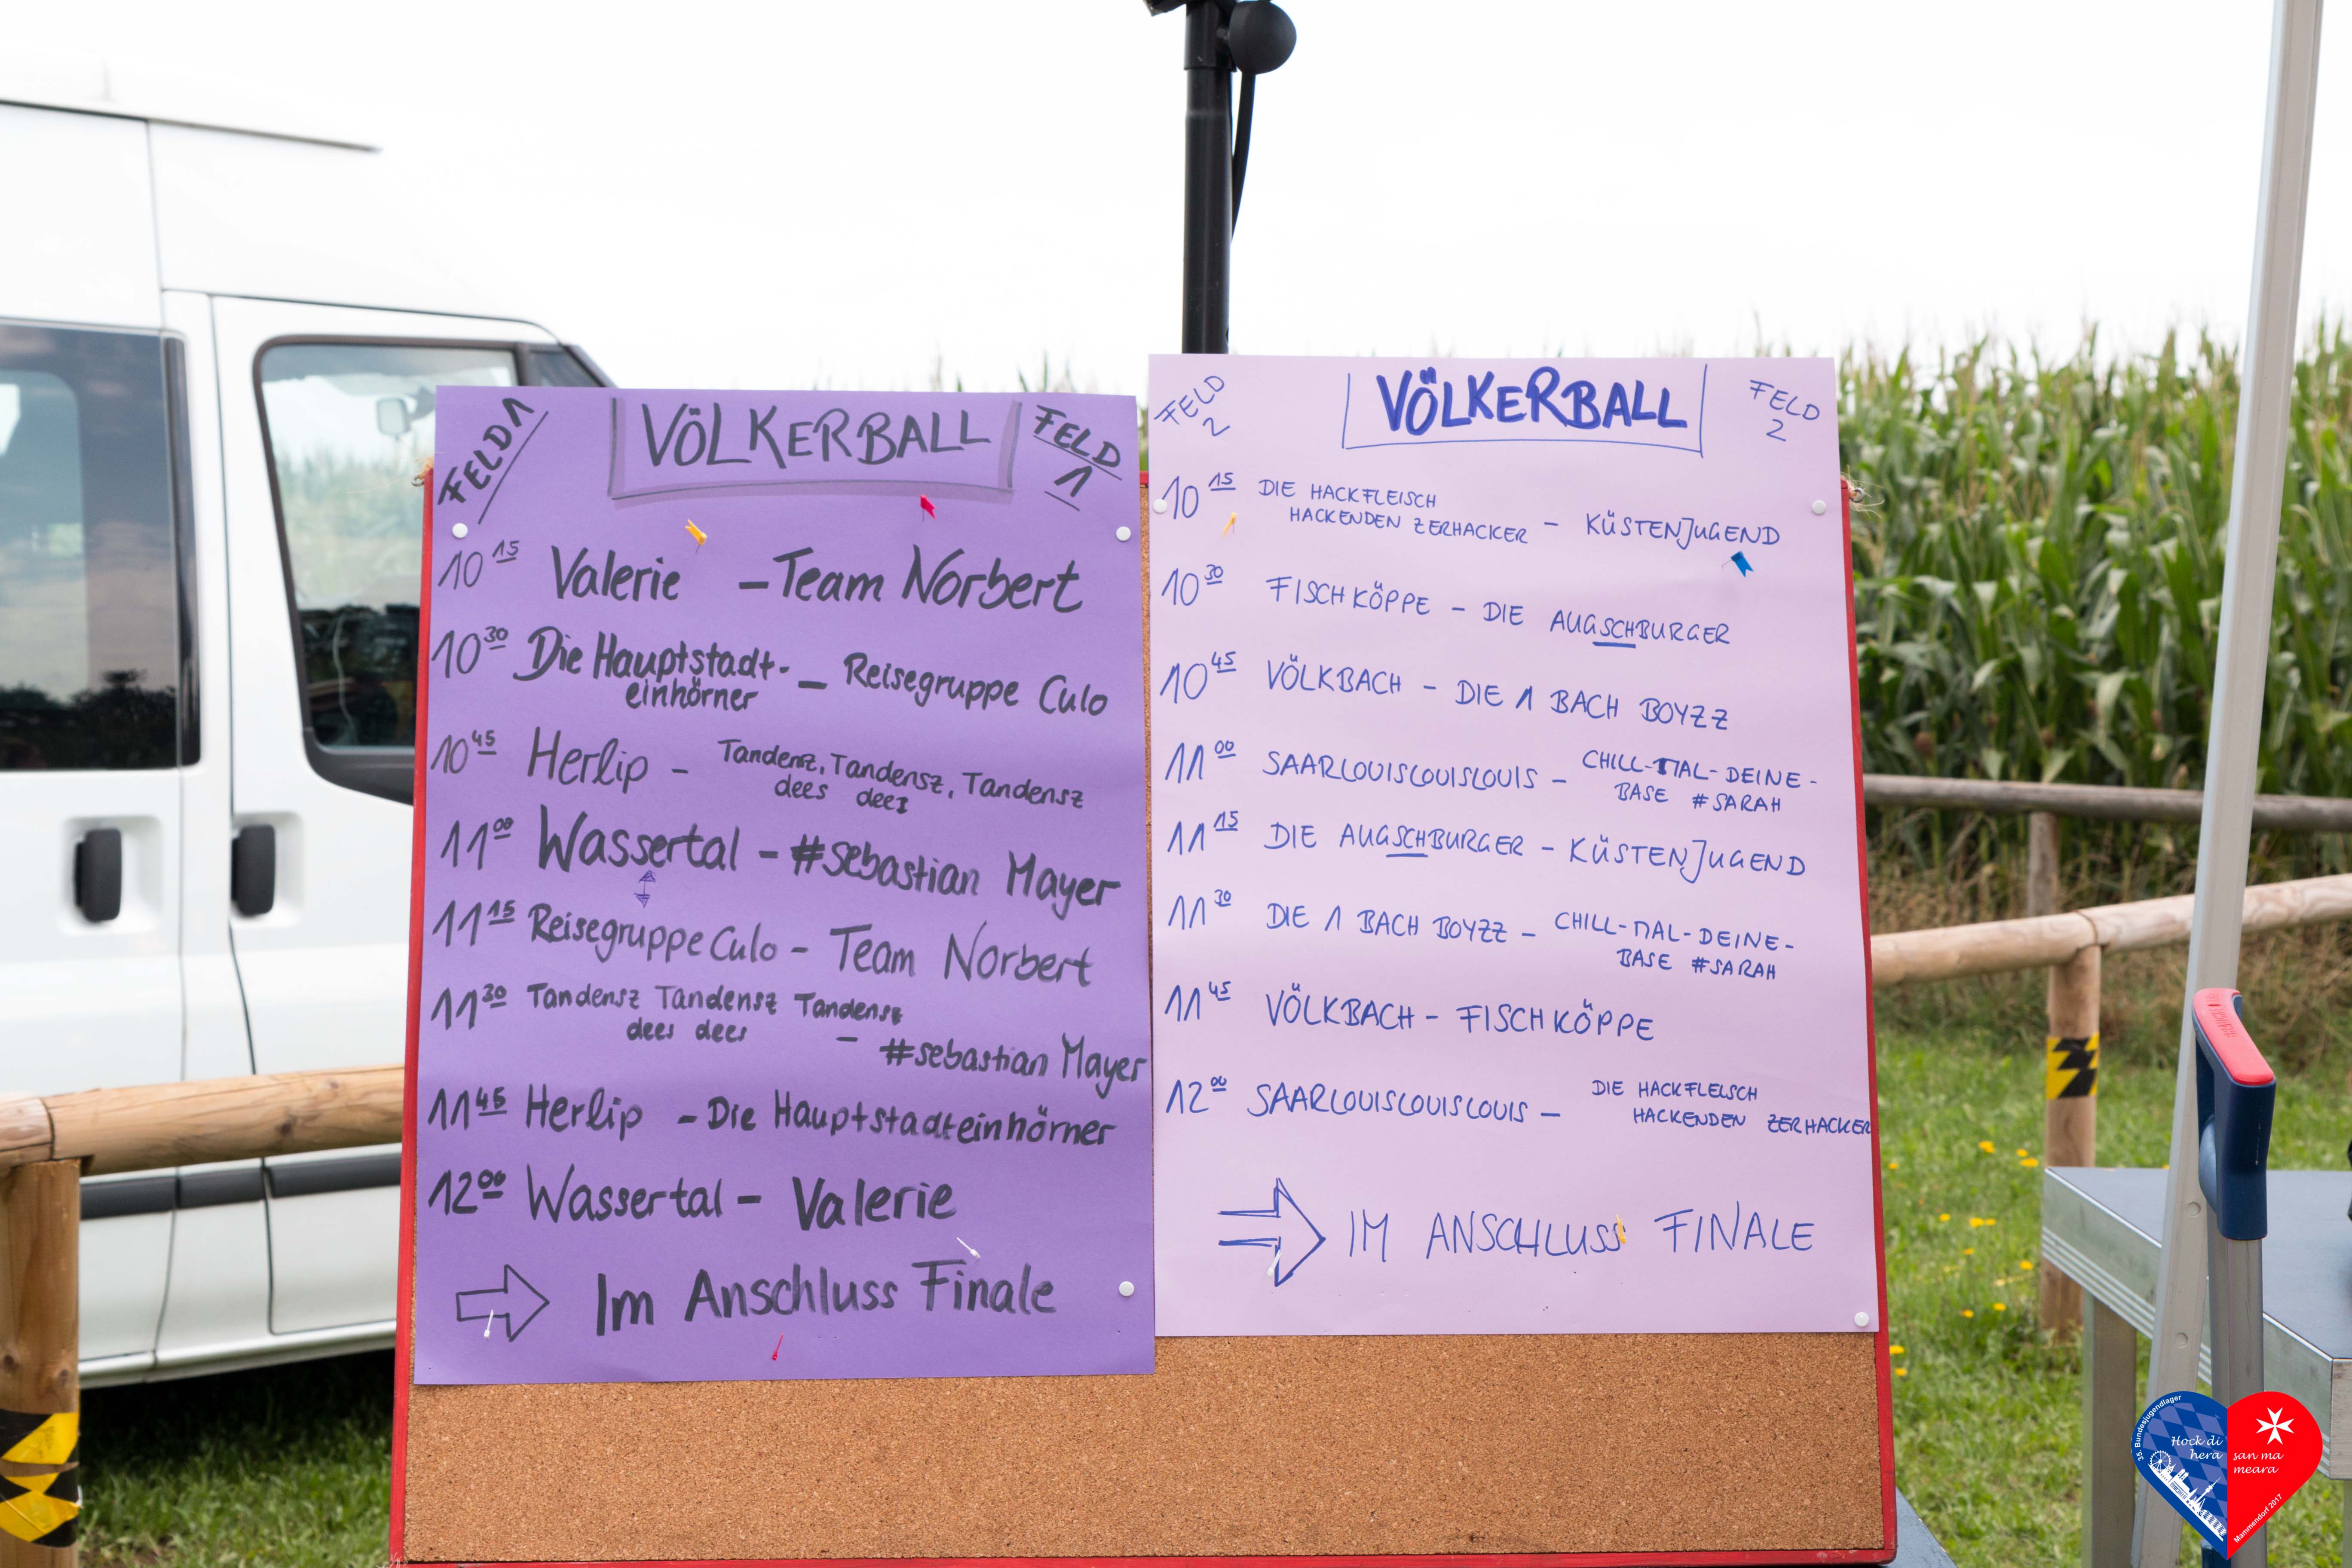 FELD 1
VÖLKERBALL
FELD
1
10 15 Valerie - Team Norbert
10 30 Die Hauptstadt-
einhörner - Reisegruppe Culo
10 45 Herlip - Tandenz, Tandensz, Tandensz
dees dees
11 00 Wassertal - #sebastian Mayer
11 15 Reisegruppe Culo - Team Norbert
11 30 Tandensz Tandensz Tandensz
dees dees
- #sebastian Mayer
11 45 Herlip - Die Hauptstadteinhörner
12 00 Wassertal - Valerie
Im Anschluss Finale
FELD
2
VÖLKERBALL
FELD
2
10 15 DIE HACKFLEISCH
HACKENDEN ZERHACKER - KÜSTENJUGEND
10 30 FISCHKÖPPE - DIE AUGSCHBURGER
10 45 VÖLKBACH - DIE 1 BACH BOYZZ
11 00 SAARLOUISLOUISLOUIS - CHILL-MAL-DEINE-
BASE #SARAH
11 15 DIE AUGSCHBURGER - KÜSTENJUGEND
11 30 DIE 1 BACH BOYZZ - CHILL-MAL-DEINE-
BASE #SARAH
11 45 VÖLKBACH - FISCHKÖPPE
12 00 SAARLOUISLOUISLOUIS - DIE HACKFLEISCH
HACKENDEN ZERHACKER
IM ANSCHLUSS FINALE
35. Bundesjugendlager
Hock di
hera
san ma
meara
Mammendorf 2017